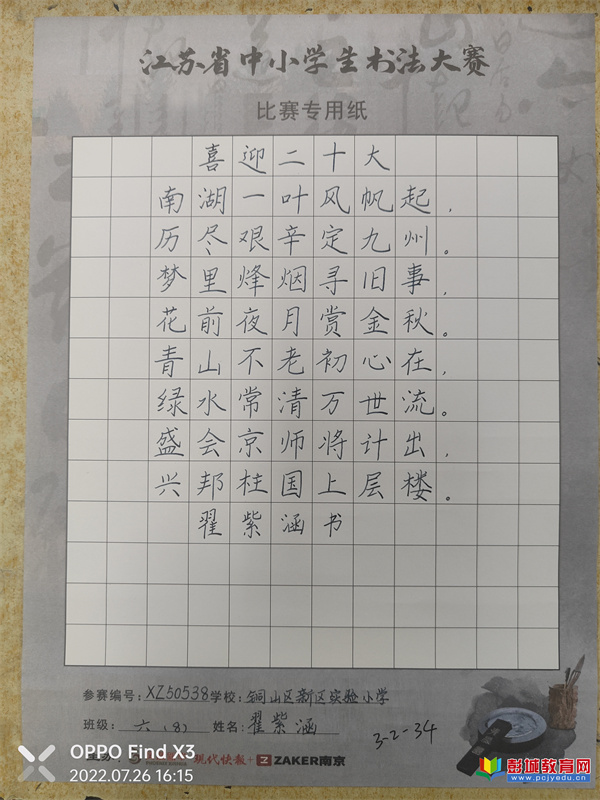 江苏省中小学生书法大赛
比赛专用纸
喜迎二十大
南湖一叶风帆起，
历尽艰辛定九州。
梦里烽烟寻旧事，
花前夜月赏金秋。
青山不老初心在，
绿水常清万世流。
盛会京师将计出，
兴邦柱国上层楼。
翟紫涵书
参赛编号：XZ50538学校：铜山区新区实验小学
班级：六（8）姓名：翟紫涵
3-2-34
现代快报+ ZAKER南京
OPPO Find X3
2022.07.26 16:15
彭城教育网
www.pcjyedu.cn